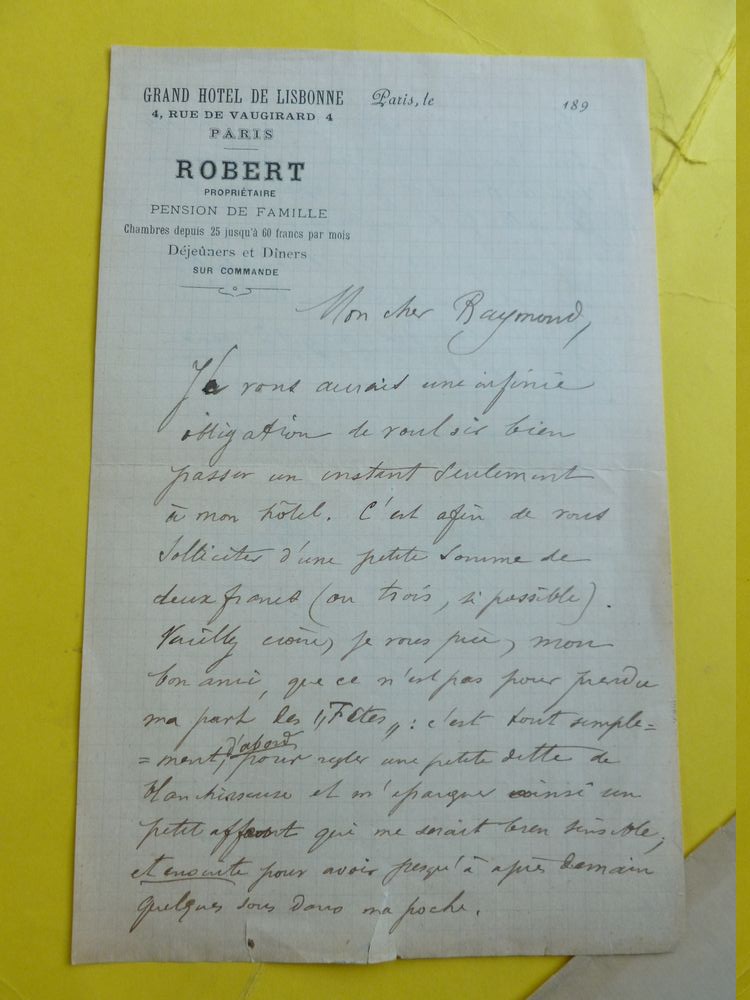 GRAND HOTEL DE LISBONNE
4, RUE DE VAUGIRARD 4
PARIS
ROBERT
PROPRIÉTAIRE
PENSION DE FAMILLE
Chambres depuis 25 jusqu'à 60 francs par mois
Déjeûners et Dîners
SUR COMMANDE
Paris, le 189
Mon cher Raymond,
Je vous aurais une infinie
obligation de vouloir bien
passer un instant seulement
à mon hôtel. C'est afin de vous
solliciter d'une petite somme de
deux francs (ou trois, si possible).
Veuillez croire, je vous prie, mon
bon ami, que ce n'est pas pour prendre
ma part des "Fêtes" : c'est tout simple=
=ment, d'abord, pour régler une petite dette de
blanchisseuse et m'épargner ainsi un
petit affront qui me serait bien sensible,
et ensuite pour avoir jusqu'à après demain
quelques sous dans ma poche.